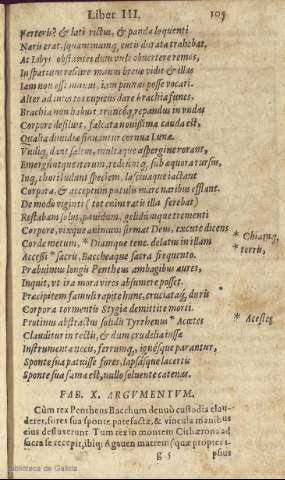 Liber III. 105
Verteris? & lati rictus, & panda loquenti
Naris erat, squamamq, cutis durata trahebat,
At Libys obstantes dum vult obvertere remos,
In spatium resilire manus breve vidit & illas
Iam non esse manus, iam pinnas posse vocari.
Alter ad intortos cupiens dare brachia funes,
Brachia non habuit, truncoq, repandus in undas
Corpore desiluit, falcata novissima cauda est,
Qualia dimidiæ sinuantur cornua Lunæ.
Undiq, dant saltus, multaque aspergine rorant,
Emerguntque iterum, redeuntq, sub æquora rursus,
Inq, chori ludunt speciem, lascivaque iactant
Corpora, & acceptum patulis mare naribus efflant.
De modo viginti (tot enim ratis illa ferebat)
Restabam solus, pavidum, gelidumque trementi
Corpore, vixque animum firmat Deus, excute dicens
Corde metum, * Diamque tene. delatus in illam
* Chiamq,
terris,
Accessi * sacris, Baccheaque sacra frequento.
Præbuimus longis Pentheus ambagibus aures,
Inquit, ut ira mora vires absumere posset.
Præcipitem famuli rapite hunc, cruciataq, duris
Corpora tormentis Stygia demittite morti.
Protinus abstractus solidis Tyrrhenus * Acœtes
* Acestes
Clauditur in tectis, & dum crudelia iussæ
Instrumenta necis, ferrumq, ignesque parantur,
Sponte sua patuisse fores, lapsasque lacertis
Sponte sua fama est, nullo solvente catenas.
FAB. X. ARGVMENTVM.
Cùm rex Pentheus Bacchum denuò custodia clau-
deret, fores sua sponte patefactæ, & vincula manibus
eius defluxerunt. Tum rex in montem Cithærona ad
sacra se recepit, ibiq; Agauen matrem suam
g 5 ipsius
Biblioteca de Galicia